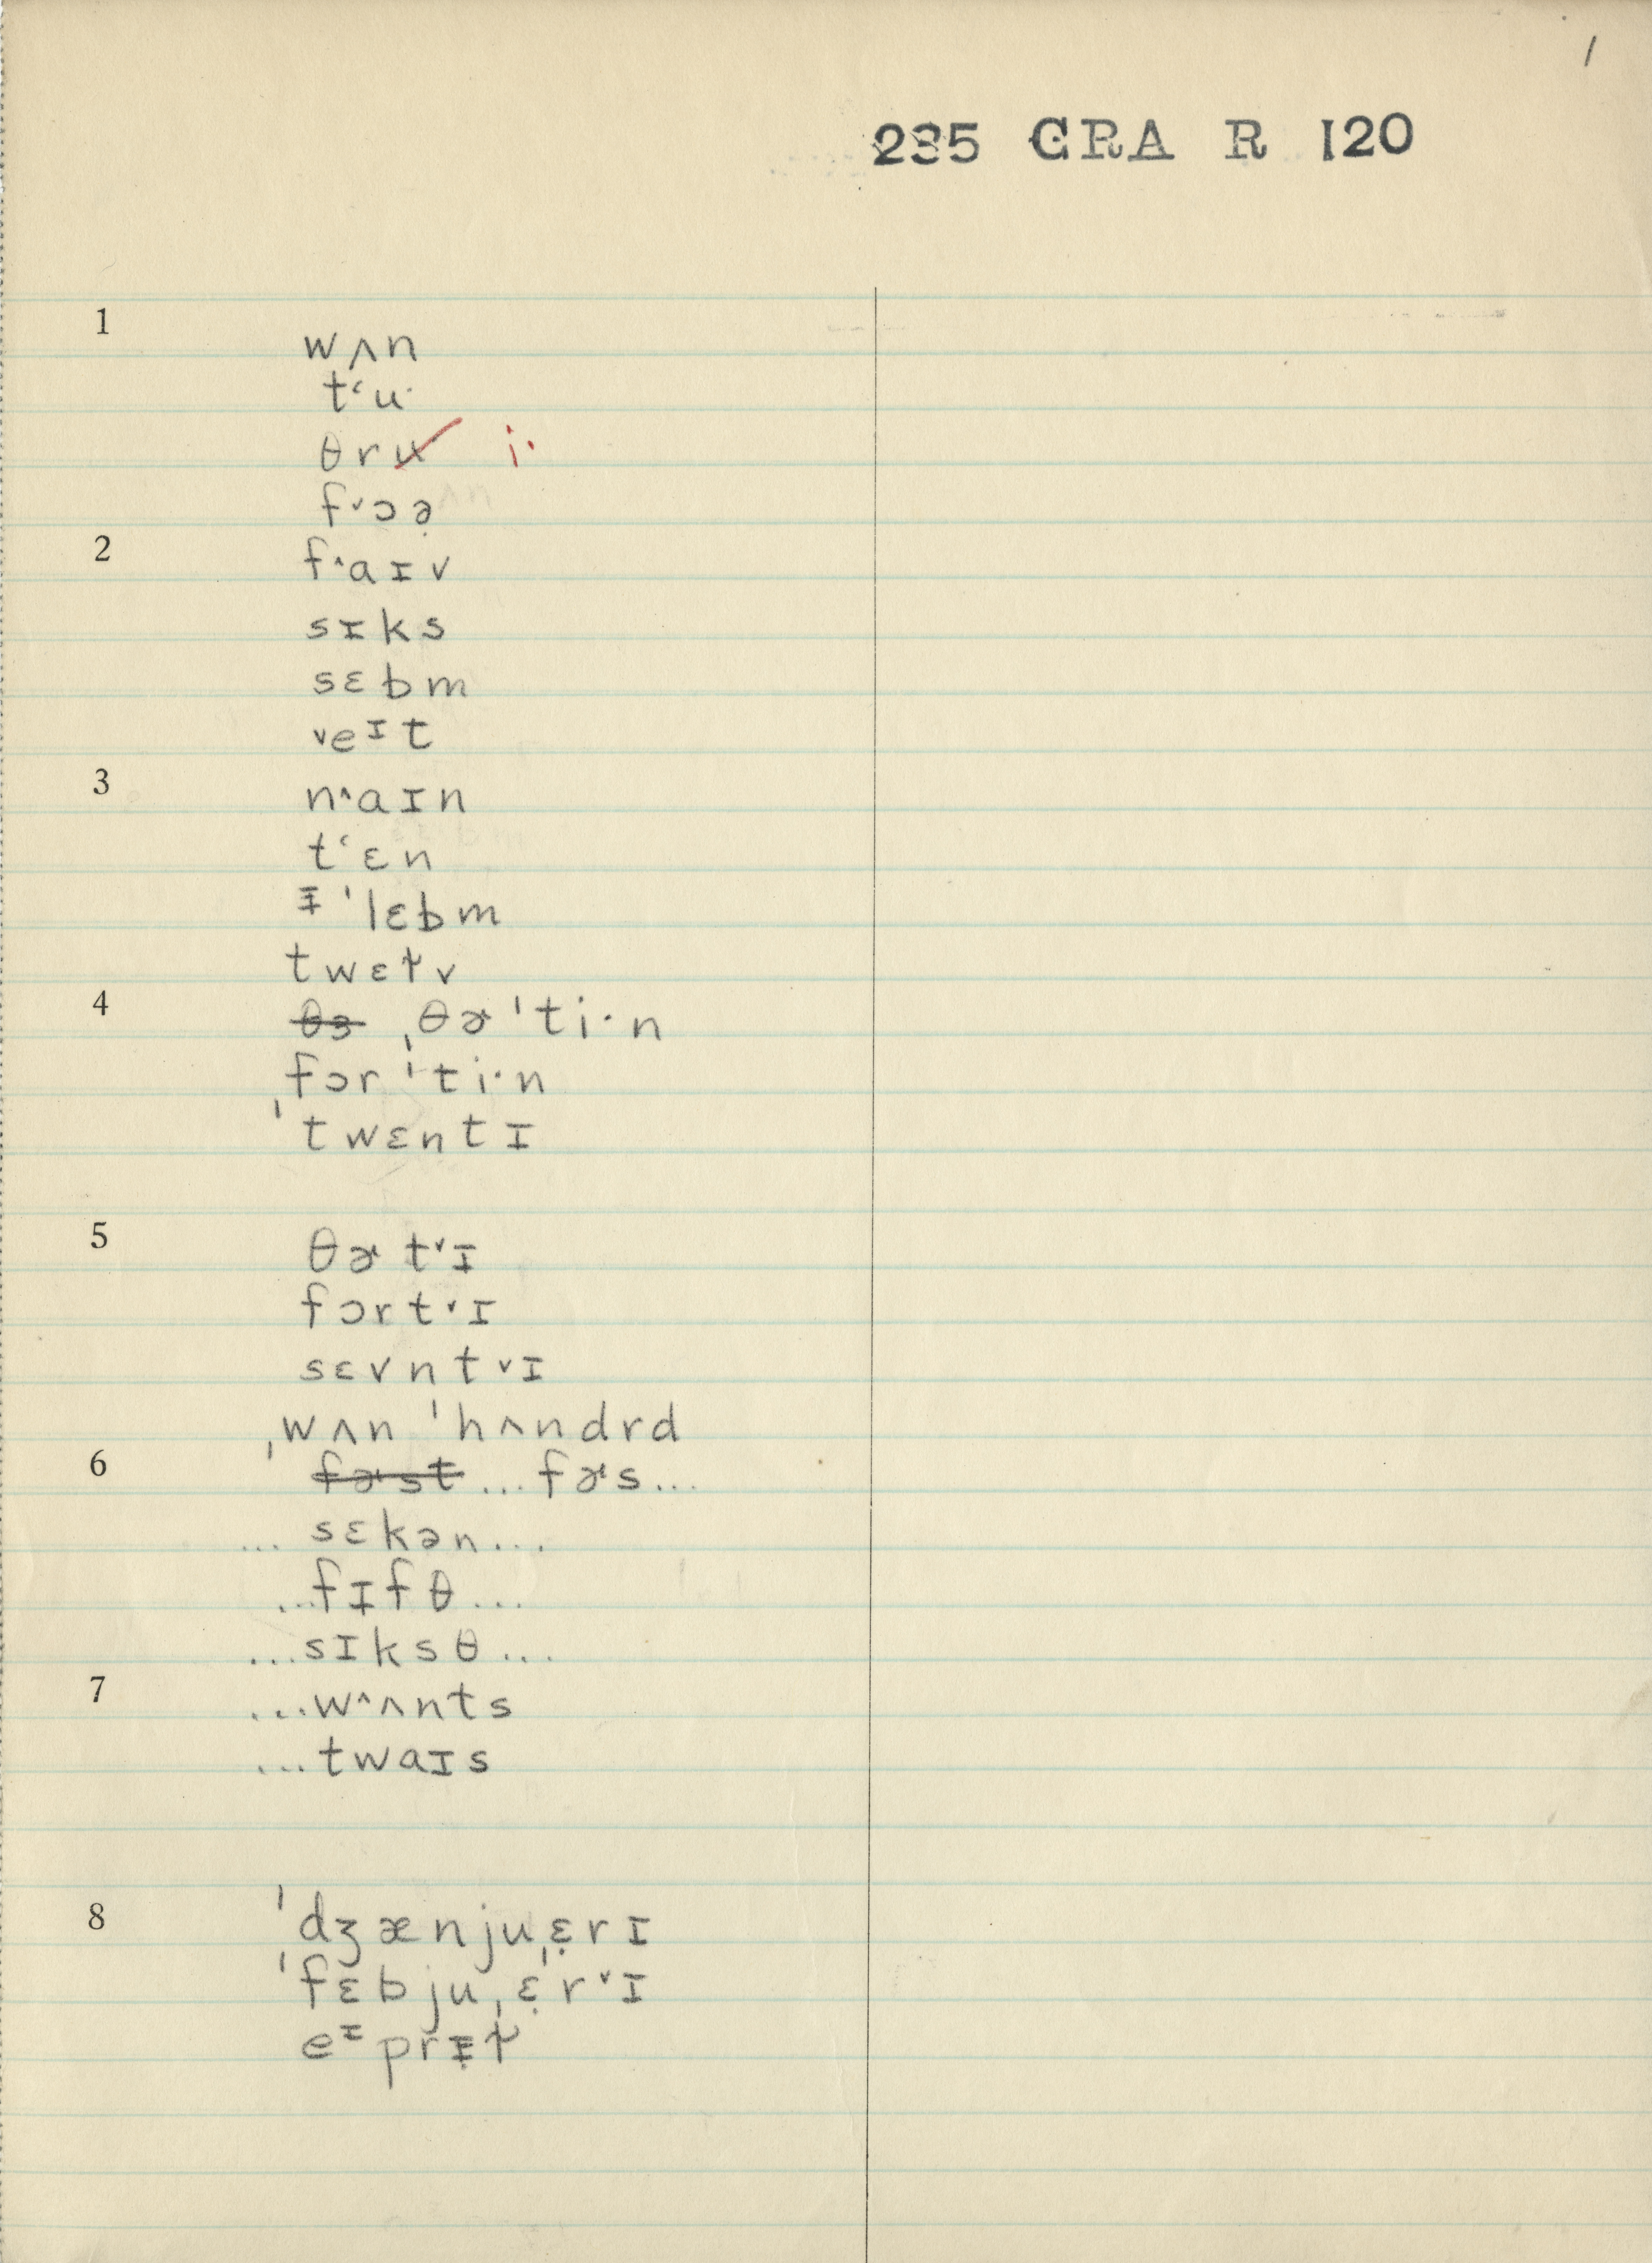 1
235 GRA R 120
1
wʌn
tʻu·
θru̶ i·
f˅ɔə̣
2
f^aɪv
sɪks
sɛbm
˅eᶦt
3
n^aɪn
tʻɛn
ᵻ ˈlɛbm
twɛɫv
4
θ̶ɜ̶ ˌθɚˈti·n
ˌfɔrˈti·n
ˈtwɛntɪ
5
θɚt˅ɪ
fɔrt˅ɪ
sɛvnt˅ɪ
ˌwʌn ˈhʌndrd
6
f̶ɚ̶s̶t̶ ...fɚs...
...sɛkən...
...fɪfθ...
...sɪksθ...
7
...w^ʌnts
...twaɪs
8
ˈdʒænjuˌɛ̣rɪ
ˈfɛbjuˌɛ̣r˅ɪ
eᶦprᵻɫ